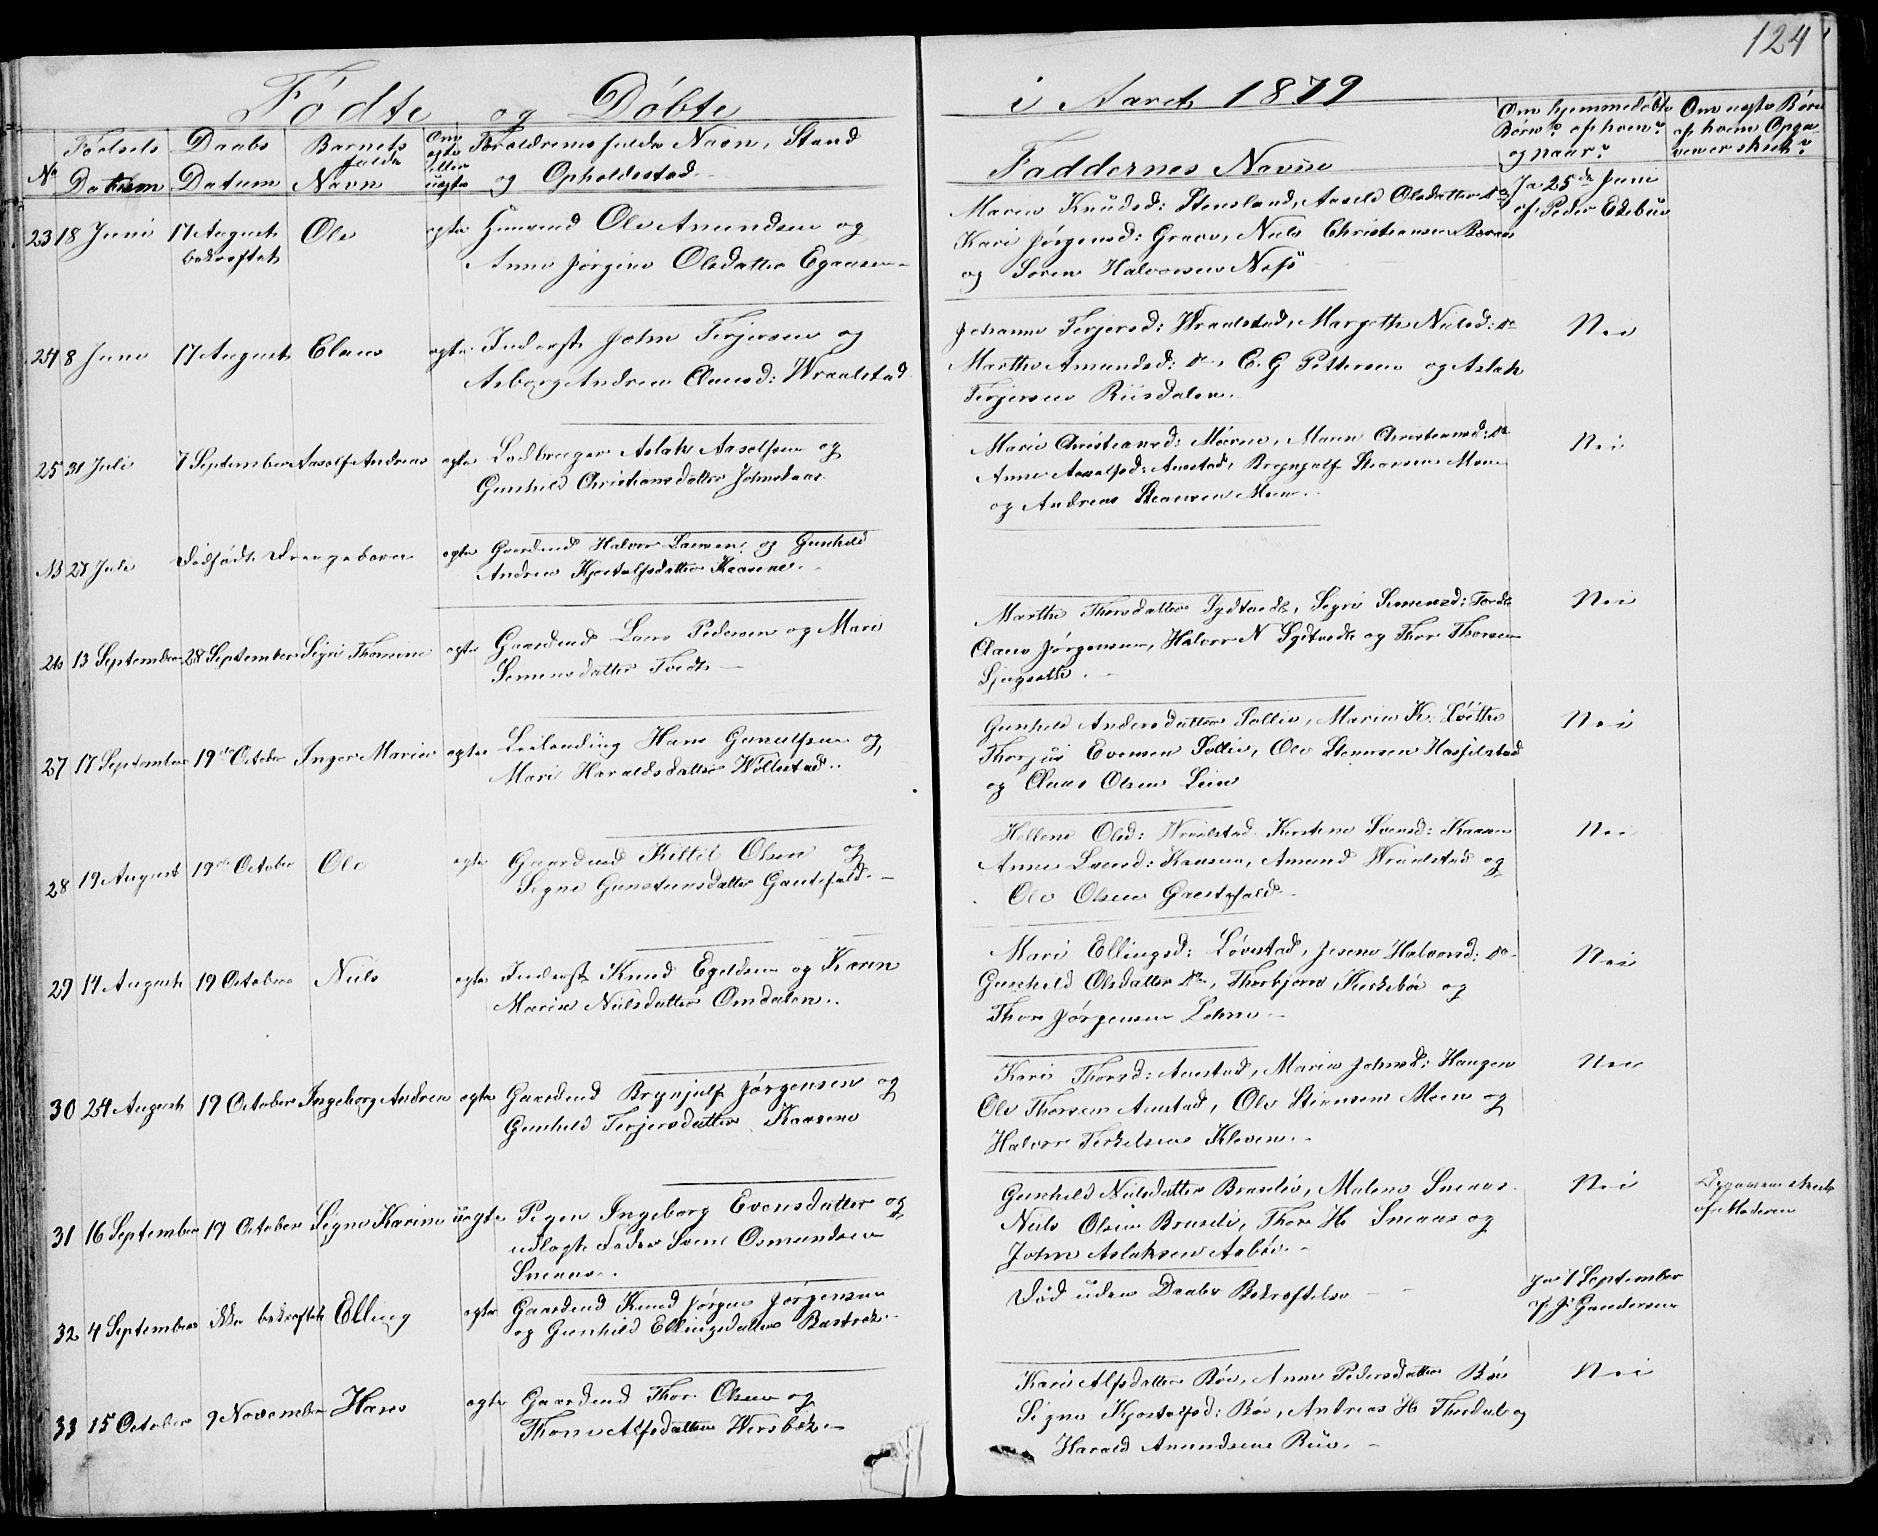 124
Födte og Döbte i Aaret 1879
No
Födsels Datum
Daabs Datum
Barnets fulde Navn
Om ægte eller uægte
Forældrenes fulde Navn, Stand og Opholdssted
Faddernes Navne
Om hjemmedöbte Börn? af hvem? og naar?
Om uægte Börn af hvem Opgaven er skeet?
23 18 Juni 17 August Ole ægte Huusmd Ole Amundsen og
bekræftet Anne Jörgine Olsdatter Egaasen
Maren Knudsd: Stensland, Aasild Olsdatter do
Kari Jörgensd: Graver, Niels Christiansen Baraas
og Sören Halvorsen Næs
Ja 25de Juni
af Peder Edsbuu
24 8 Juni 17 August Claus ægte Inderst John Terjersen og
Asborg Andrea Clausd: Wraalstad
Johanne Terjersd: Wraalstad, Margethe Nielsd: do
Marthe Amundsd: do, C. G Pettersen og Aslak
Terjersen Riisdalen.
Nei
25 31 Juli 7 September Aasolf Andreas ægte Ladbruger Aslak Aasolfsen og
Gunhild Christiansdatter Johnskaas
Marie Christiansd: Moen, Maren Christiansd: do
Anne Aasolfsd: Aaestad, Brynjulf Steansen Moen
og Andreas Steansen Moen.
Nei
NB 27 Juli Dödfödt Drengebarn ægte Gaardmd Halvor Larsen og Gunhild
Andrea Kjostolfsdatter Kaasene.
26 13 September 28 September Signe Thorine ægte Gaardmd Lars Pedersen og Mari
Simensdatter Tvedt
Marthe Thorsdatter Sydtvedt, Sigri Simensd: Tvedt
Claus Jörgensen, Halvor N Sydtvedt og Thor Thorsen
Ljugrothe.
Nei
27 17 September 19de October Inger Marie ægte Leilending Hans Gunulfsen og
Mari Haraldsdatter Wöllestad.
Gunhild Andersdatter Sollie, Maria K. Löithe
Thorjus Evensen Sollie, Ole Steansen Hasfjelstad
og Claus Olsen Lien
Nei
28 19 August 19de October Ole ægte Gaardmd Kittil Olsen og
Signe Gunstensdatter Gautefald.
Hellene Olsd: Wraalstad Kerstine Svensd: Kaasen
Anne Larsd: Kaasen, Amund Wraalstad og
Ole Olsen Gautefald
Nei
29 14 August 19 October Niels ægte Inderst Knud Egeldsen og Karen
Maria Nielsdatter Omdalen.
Mari Ellingsd: Lövstad, Jesine Halvorsd: do
Gunhild Olsdatter do, Thorbjörn Kirkebö og
Thor Jörgensen Lohne
Nei
30 24 August 19 October Ingeborg Andrea ægte Gaardmd Brynjulf Jörgensen og
Gunhild Terjersdatter Kaasene
Kari Thorsd: Aaestad, Maria Johnsd: Haugen
Ole Thorsen Aaestad, Ole Steansen Moen og
Halvor Terkelsen Kleven.
Nei
31 16 September 19 October Signe Karine uægte Pigen Ingeborg Evensdatter og
udlagte Fader Svend Osmundsen
Sneaas.
Gunhild Nielsdatter Braalie, Malene Sneaas
Niels Olsen Braalie, Thor H. Sneaas og
John Aslaksen Aasböe.
Nei
Opgaven skeet
af Moderen
32 4 September ikke bekræftet Elling ægte Gaardmd Knud Jörgen Jörgensen
og Gunhild Ellingsdatter Barstad
Död uden Daabs Bekræftelse
Ja 7 September
af J. Gundersen
33 15 October 9 November Hans ægte Gaardmd Thor Olsen og
Thone Alfsdatter Wersbek
Kari Alfsdatter Böe, Anne Pedersdatter Böe
Signe Kjostolfsd: Böe, Andreas H. Thordal og
Harald Amundsen Rüe.
Nei